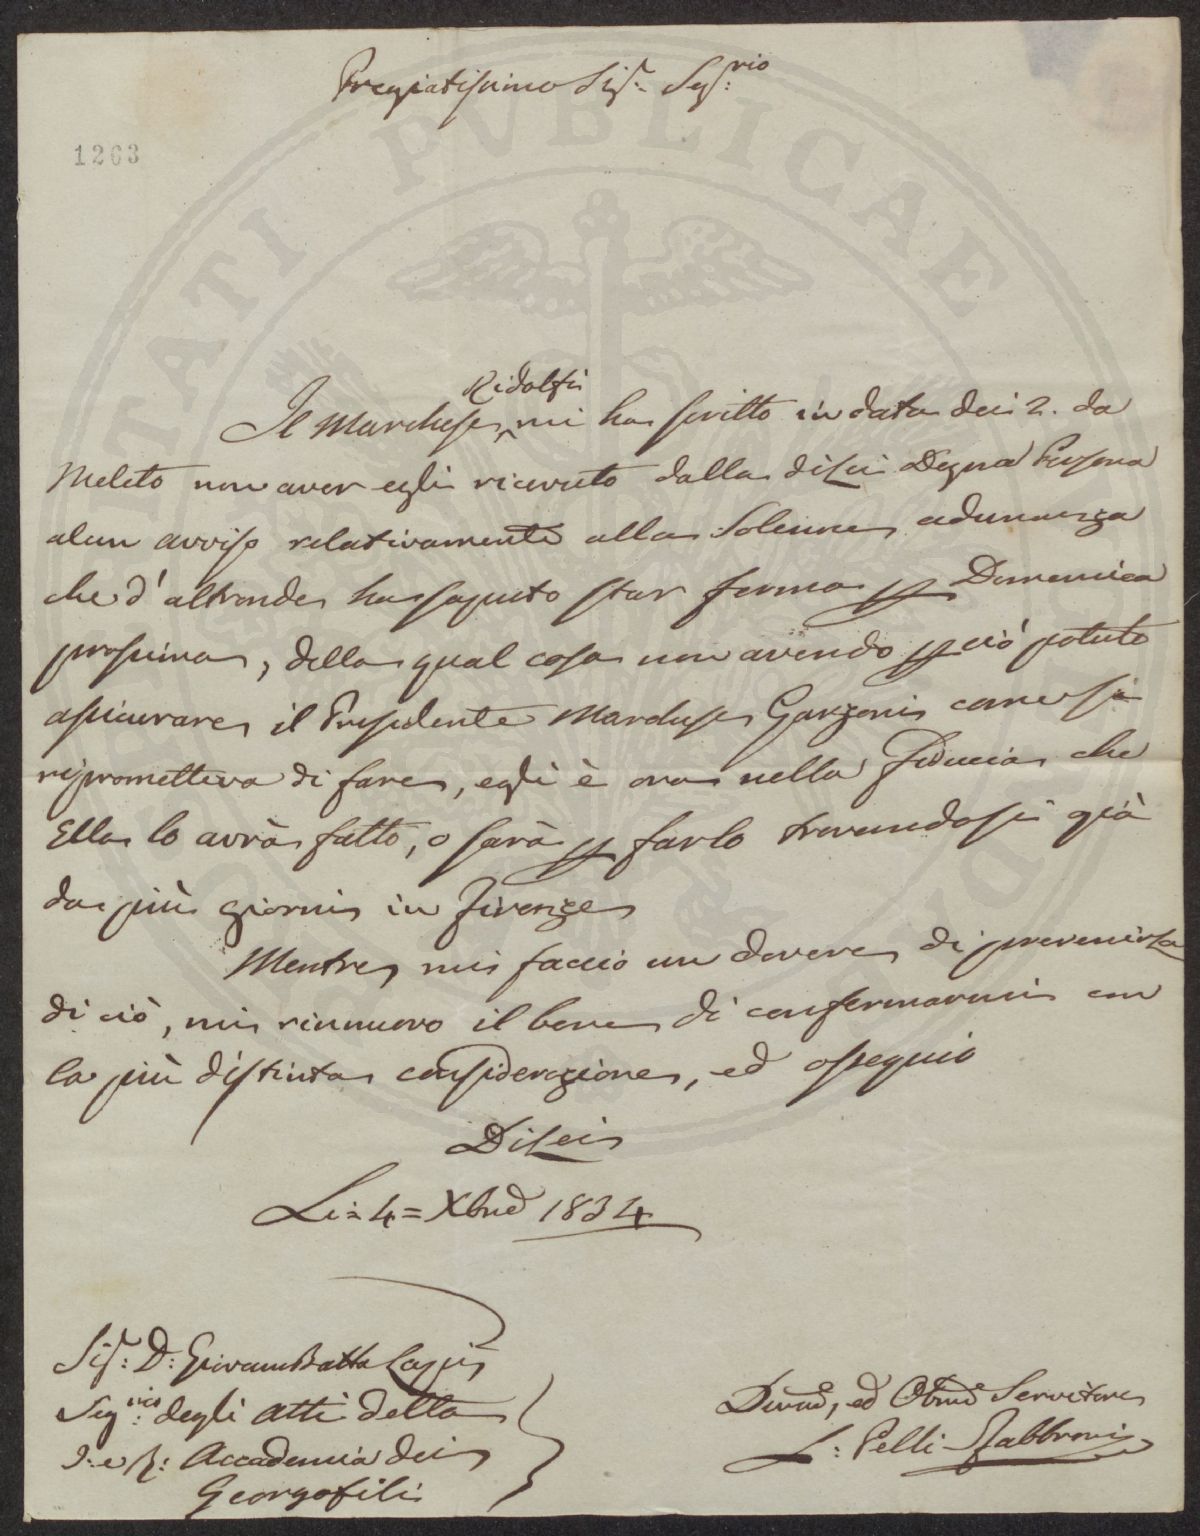 Pregiatissimo Sigr. Segr:rio
1263
Ridolfi
Il Marchese mi ha scritto in data dei 2. da
Meleto non aver egli ricevuto dalla di Lei Degna Persona
alcun avviso relativamente alla Solenne adunanza
che d'altronde ha saputo star ferma p Domenica
prossima, della qual cosa non avendo p ciò potuto
assicurare il Presidente Marchese Garzoni come si
riprometteva di fare, egli è ora nella fiducia che
Ella lo avrà fatto, o sarà p farlo trovandosi già
da più giorni in Firenze
Mentre mi faccio un dovere di prevenirla
di ciò, mi rinnuovo il bene di confermarmi con
la più distinta considerazione, ed ossequio
Di Lei
Li = 4 = Xbre 1834
Sigr: D: Giovam Batta Lapi
Segrio: degli Atti della
I: e R: Accademia dei
Georgofili
Devmo, ed Obmo Servitore
L: Pelli Fabbroni
PVBLICAE